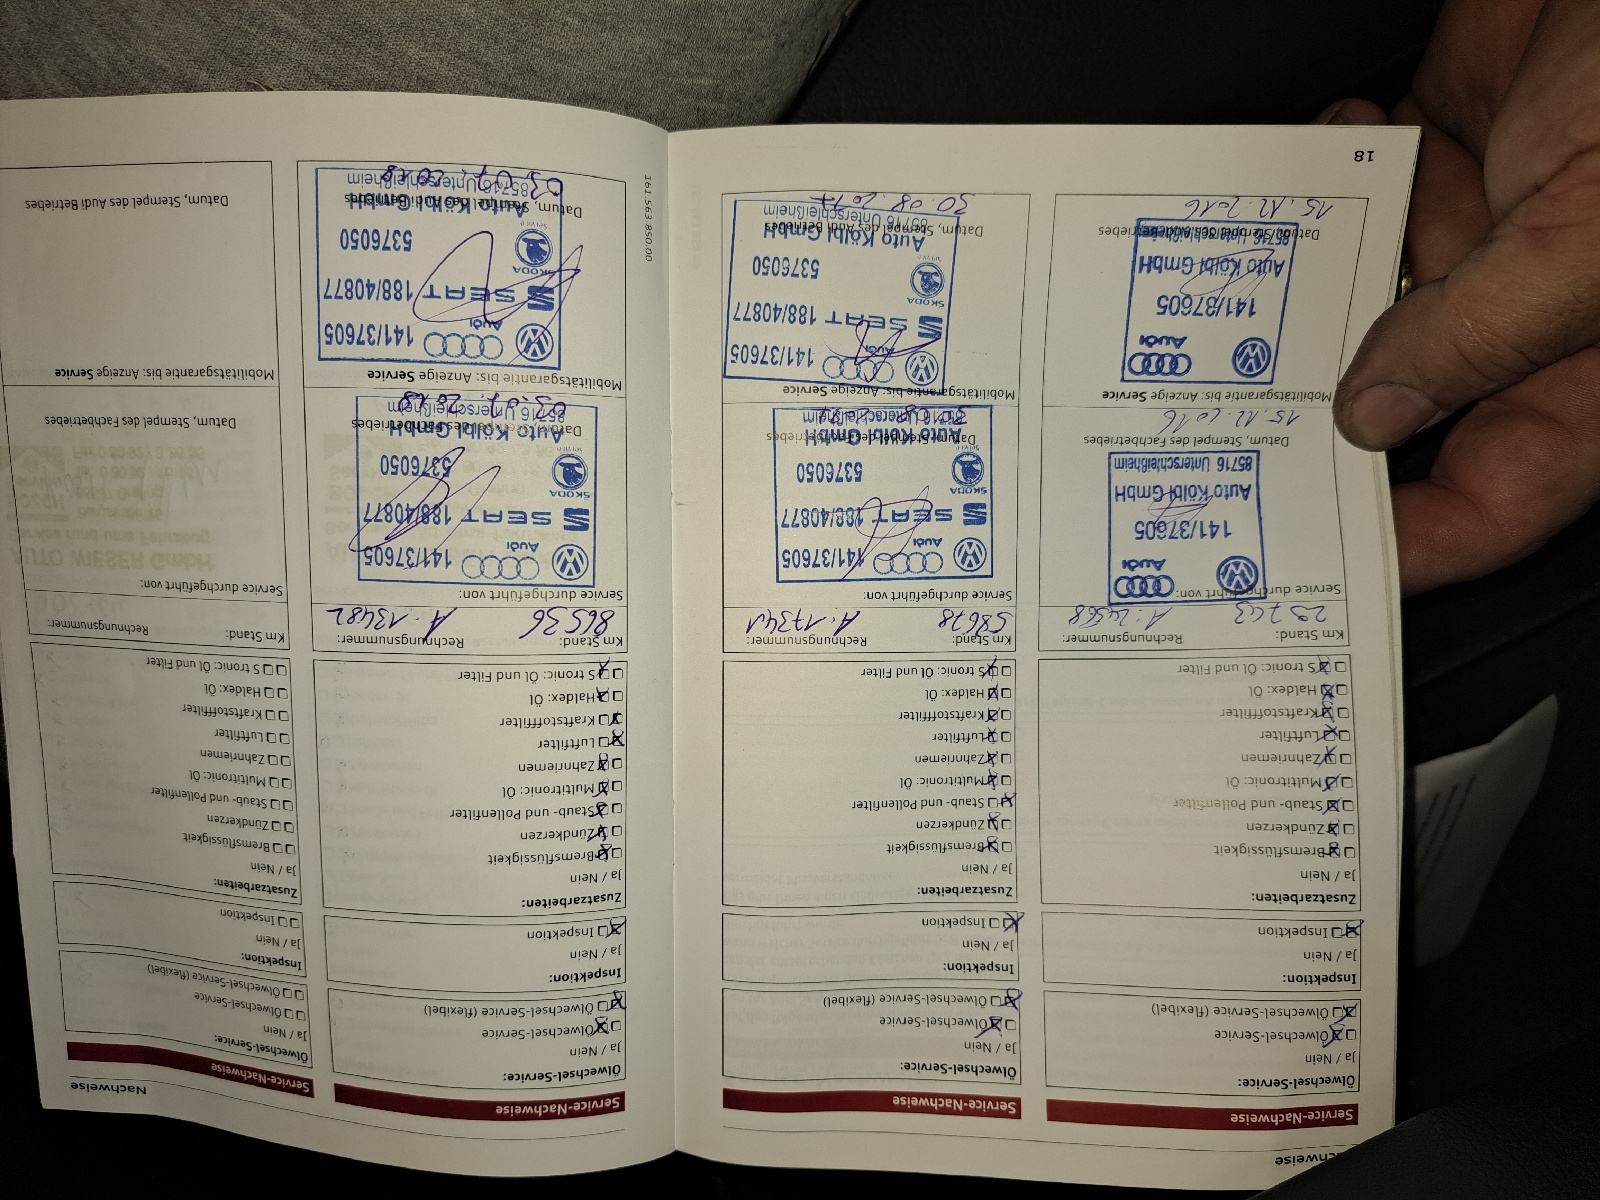 Nachweise
Service-Nachweise
Ölwechsel-Service:
Ja / Nein
Ölwechsel-Service
Ölwechsel-Service (flexibel)
Inspektion:
Ja / Nein
Inspektion
Zusatzarbeiten:
Ja / Nein
Bremsflüssigkeit
Zündkerzen
Staub- und Pollenfilter
Multitronic: Öl
Zahnriemen
Luftfilter
Kraftstofffilter
Haldex: Öl
S tronic: Öl und Filter
Km Stand: Rechnungsnummer:
29743 A:
Service durchgeführt von:
Audi
141/37605
Auto Kölbl GmbH
85716 Unterschleißheim
Datum, Stempel des Fachbetriebes
15.12.2016
Mobilitätsgarantie bis: Anzeige Service
Audi
141/37605
Auto Kölbl GmbH
85716 Unterschleißheim
Datum, Stempel des Audi Betriebes
15.12.2016
18
Service-Nachweise
Ölwechsel-Service:
Ja / Nein
Ölwechsel-Service
Ölwechsel-Service (flexibel)
Inspektion:
Ja / Nein
Inspektion
Zusatzarbeiten:
Ja / Nein
Bremsflüssigkeit
Zündkerzen
Staub- und Pollenfilter
Multitronic: Öl
Zahnriemen
Luftfilter
Kraftstofffilter
Haldex: Öl
S tronic: Öl und Filter
Km Stand: Rechnungsnummer:
58678 A:
Service durchgeführt von:
Audi
141/37605
SEAT 188/40877
ŠKODA
Service
5376050
Auto Kölbl GmbH
85716 Unterschleißheim
Datum, Stempel des Fachbetriebes
Mobilitätsgarantie bis: Anzeige Service
Audi
141/37605
SEAT 188/40877
ŠKODA
Service
5376050
Auto Kölbl GmbH
85716 Unterschleißheim
Datum, Stempel des Audi Betriebes
30.08.2017
161.563.850.00
Service-Nachweise
Ölwechsel-Service:
Ja / Nein
Ölwechsel-Service
Ölwechsel-Service (flexibel)
Inspektion:
Ja / Nein
Inspektion
Zusatzarbeiten:
Ja / Nein
Bremsflüssigkeit
Zündkerzen
Staub- und Pollenfilter
Multitronic: Öl
Zahnriemen
Luftfilter
Kraftstofffilter
Haldex: Öl
S tronic: Öl und Filter
Km Stand: Rechnungsnummer:
86536 A:13482
Service durchgeführt von:
Audi
141/37605
SEAT 188/40877
ŠKODA
Service
5376050
Auto Kölbl GmbH
85716 Unterschleißheim
Datum, Stempel des Fachbetriebes
03.07.2018
Mobilitätsgarantie bis: Anzeige Service
Audi
141/37605
SEAT 188/40877
ŠKODA
Service
5376050
Auto Kölbl GmbH
85716 Unterschleißheim
Datum, Stempel des Audi Betriebes
03.07.2018
Nachweise
Service-Nachweise
Ölwechsel-Service:
Ja / Nein
Ölwechsel-Service
Ölwechsel-Service (flexibel)
Inspektion:
Ja / Nein
Inspektion
Zusatzarbeiten:
Ja / Nein
Bremsflüssigkeit
Zündkerzen
Staub- und Pollenfilter
Multitronic: Öl
Zahnriemen
Luftfilter
Kraftstofffilter
Haldex: Öl
S tronic: Öl und Filter
Km Stand: Rechnungsnummer:
Service durchgeführt von:
Datum, Stempel des Fachbetriebes
Mobilitätsgarantie bis: Anzeige Service
Datum, Stempel des Audi Betriebes